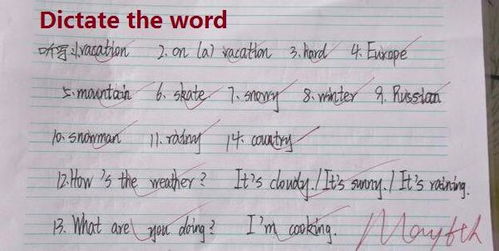 Dictate the word
听写:1.vacation 2. on (a) vacation 3. hard 4. Europe
5. mountain 6. skate 7. snowy 8. winter 9. Russian
10. snowman 11. rainy 14. country
12. How 's the weather? It's cloudy./It's sunny./It's raining.
13. What are you doing? I'm cooking.